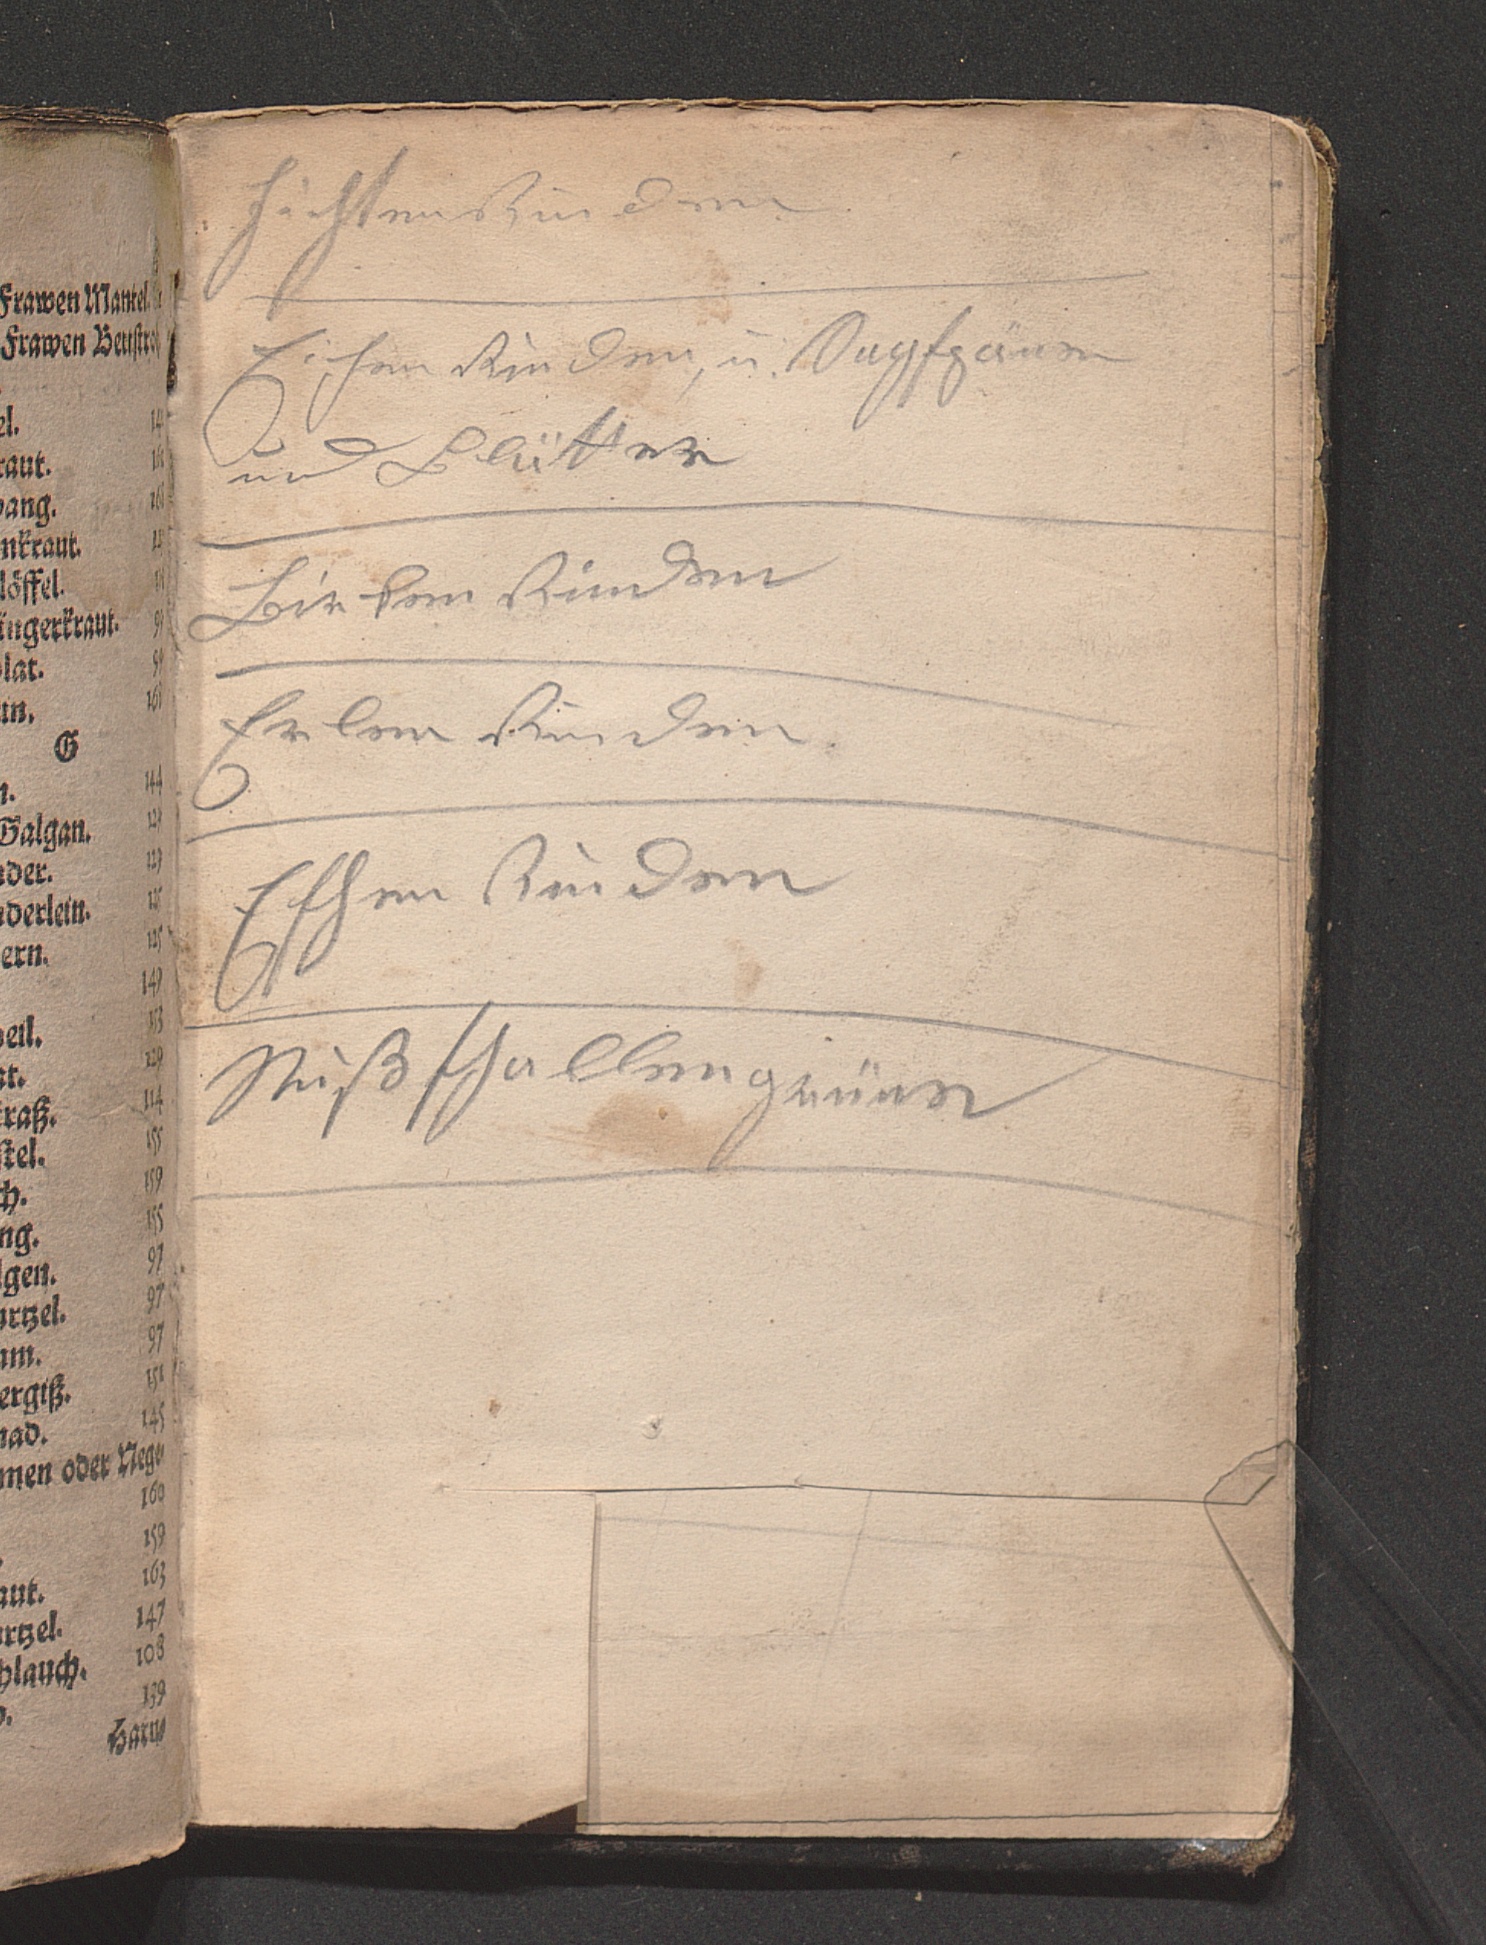 Frawen Mantel.
Frawen Beustro
el. 14
raut.
vang. 161
nkraut.
löffel.
ingerkraut.
lat.
in. 161
G
n. 144
Galgan.
nder. 123
nderlein.
ern. 125
149
weil. 153
at. 129
traß. 114
stel. 155
ch. 159
ng. 155
lgen. 97
urtzel. 97
um. 97
ergiß. 151
nad. 145
men oder Nege
160
159
aut. 163
urtzel. 147
hlauch. 108
139
Harn
Fichten Rinden
Eichen Rinden, u.
und Blätter
Birken Rinden
Erlen Rinden
Eschen Rinden
Nußschallengrüne